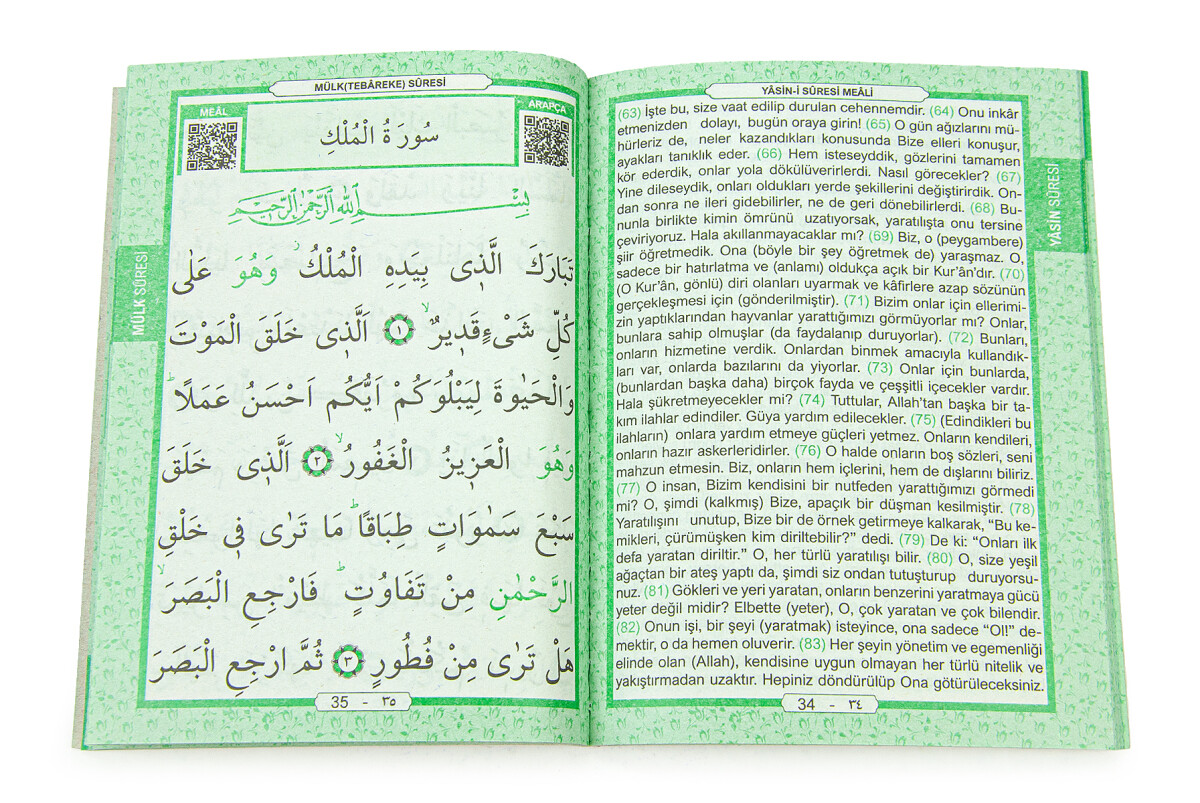 YÂSİN-İ SÛRESİ MEÂLİ
(63) İşte bu, size vaat edilip durulan cehennemdir. (64) Onu inkâr
etmenizden dolayı, bugün oraya girin! (65) O gün ağızlarını mü-
hürleriz de, neler kazandıkları konusunda Bize elleri konuşur,
ayakları tanıklık eder. (66) Hem isteseyddik, gözlerini tamamen
kör ederdik, onlar yola dökülüverirlerdi. Nasıl görecekler? (67)
Yine dileseydik, onları oldukları yerde şekillerini değiştirirdik. On-
dan sonra ne ileri gidebilirler, ne de geri dönebilirlerdi. (68) Bu-
nunla birlikte kimin ömrünü uzatıyorsak, yaratılışta onu tersine
çeviriyoruz. Hala akıllanmayacaklar mı? (69) Biz, o (peygambere)
şiir öğretmedik. Ona (böyle bir şey öğretmek de) yaraşmaz. O,
sadece bir hatırlatma ve (anlamı) oldukça açık bir Kur’ân’dır. (70)
(O Kur’ân, gönlü) diri olanları uyarmak ve kâfirlere azap sözünün
gerçekleşmesi için (gönderilmiştir). (71) Bizim onlar için ellerimi-
zin yaptıklarından hayvanlar yarattığımızı görmüyorlar mı? Onlar,
bunlara sahip olmuşlar (da faydalanıp duruyorlar). (72) Bunları,
onların hizmetine verdik. Onlardan binmek amacıyla kullandık-
ları var, onlarda bazılarını da yiyorlar. (73) Onlar için bunlarda,
(bunlardan başka daha) birçok fayda ve çeşşitli içecekler vardır.
Hala şükretmeyecekler mi? (74) Tuttular, Allah’tan başka bir ta-
kım ilahlar edindiler. Güya yardım edilecekler. (75) (Edindikleri bu
ilahların) onlara yardım etmeye güçleri yetmez. Onların kendileri,
onların hazır askerleridirler. (76) O halde onların boş sözleri, seni
mahzun etmesin. Biz, onların hem içlerini, hem de dışlarını biliriz.
(77) O insan, Bizim kendisini bir nutfeden yarattığımızı görmedi
mi? O, şimdi (kalkmış) Bize, apaçık bir düşman kesilmiştir. (78)
Yaratılışını unutup, Bize bir de örnek getirmeye kalkarak, “Bu ke-
mikleri, çürümüşken kim diriltebilir?” dedi. (79) De ki: “Onları ilk
defa yaratan diriltir.” O, her türlü yaratılışı bilir. (80) O, size yeşil
ağaçtan bir ateş yaptı da, şimdi siz ondan tutuşturup duruyorsu-
nuz. (81) Gökleri ve yeri yaratan, onların benzerini yaratmaya gücü
yeter değil midir? Elbette (yeter), O, çok yaratan ve çok bilendir.
(82) Onun işi, bir şeyi (yaratmak) isteyince, ona sadece “Ol!” de-
mektir, o da hemen oluverir. (83) Her şeyin yönetim ve egemenliği
elinde olan (Allah), kendisine uygun olmayan her türlü nitelik ve
yakıştırmadan uzaktır. Hepiniz döndürülüp Ona götürüleceksiniz.
34 - ٣٤
YÂSİN SÛRESİ
MÜLK(TEBÂREKE) SÛRESİ
MEÂL
ARAPÇA
سُورَةُ الْمُلْكِ
بِسْمِ اللّٰهِ الرَّحْمٰنِ الرَّحِيمِ
تَبَارَكَ الَّذٖى بِيَدِهِ الْمُلْكُۙ وَهُوَ عَلٰى
كُلِّ شَىْءٍ قَدٖيرٌۙ ﴿١﴾ اَلَّذٖى خَلَقَ الْمَوْتَ
وَالْحَيٰوةَ لِيَبْلُوَكُمْ اَيُّكُم اَحْسَنُ عَمَلًاؕ
وَهُوَ الْعَزٖيزُ الْغَفُورُۙ ﴿٢﴾ اَلَّذٖى خَلَقَ
سَبْعَ سَمٰوَاتٍ طِبَاقًاؕ مَا تَرٰى فٖى خَلْقِ
الرَّحْمٰنِ مِنْ تَفَاوُتٍؕ فَارْجِعِ الْبَصَرَۙ
هَلْ تَرٰى مِنْ فُطُورٍ ﴿٣﴾ ثُمَّ ارْجِعِ الْبَصَرَ
35 - ٣٥
MÜLK SÛRESİ